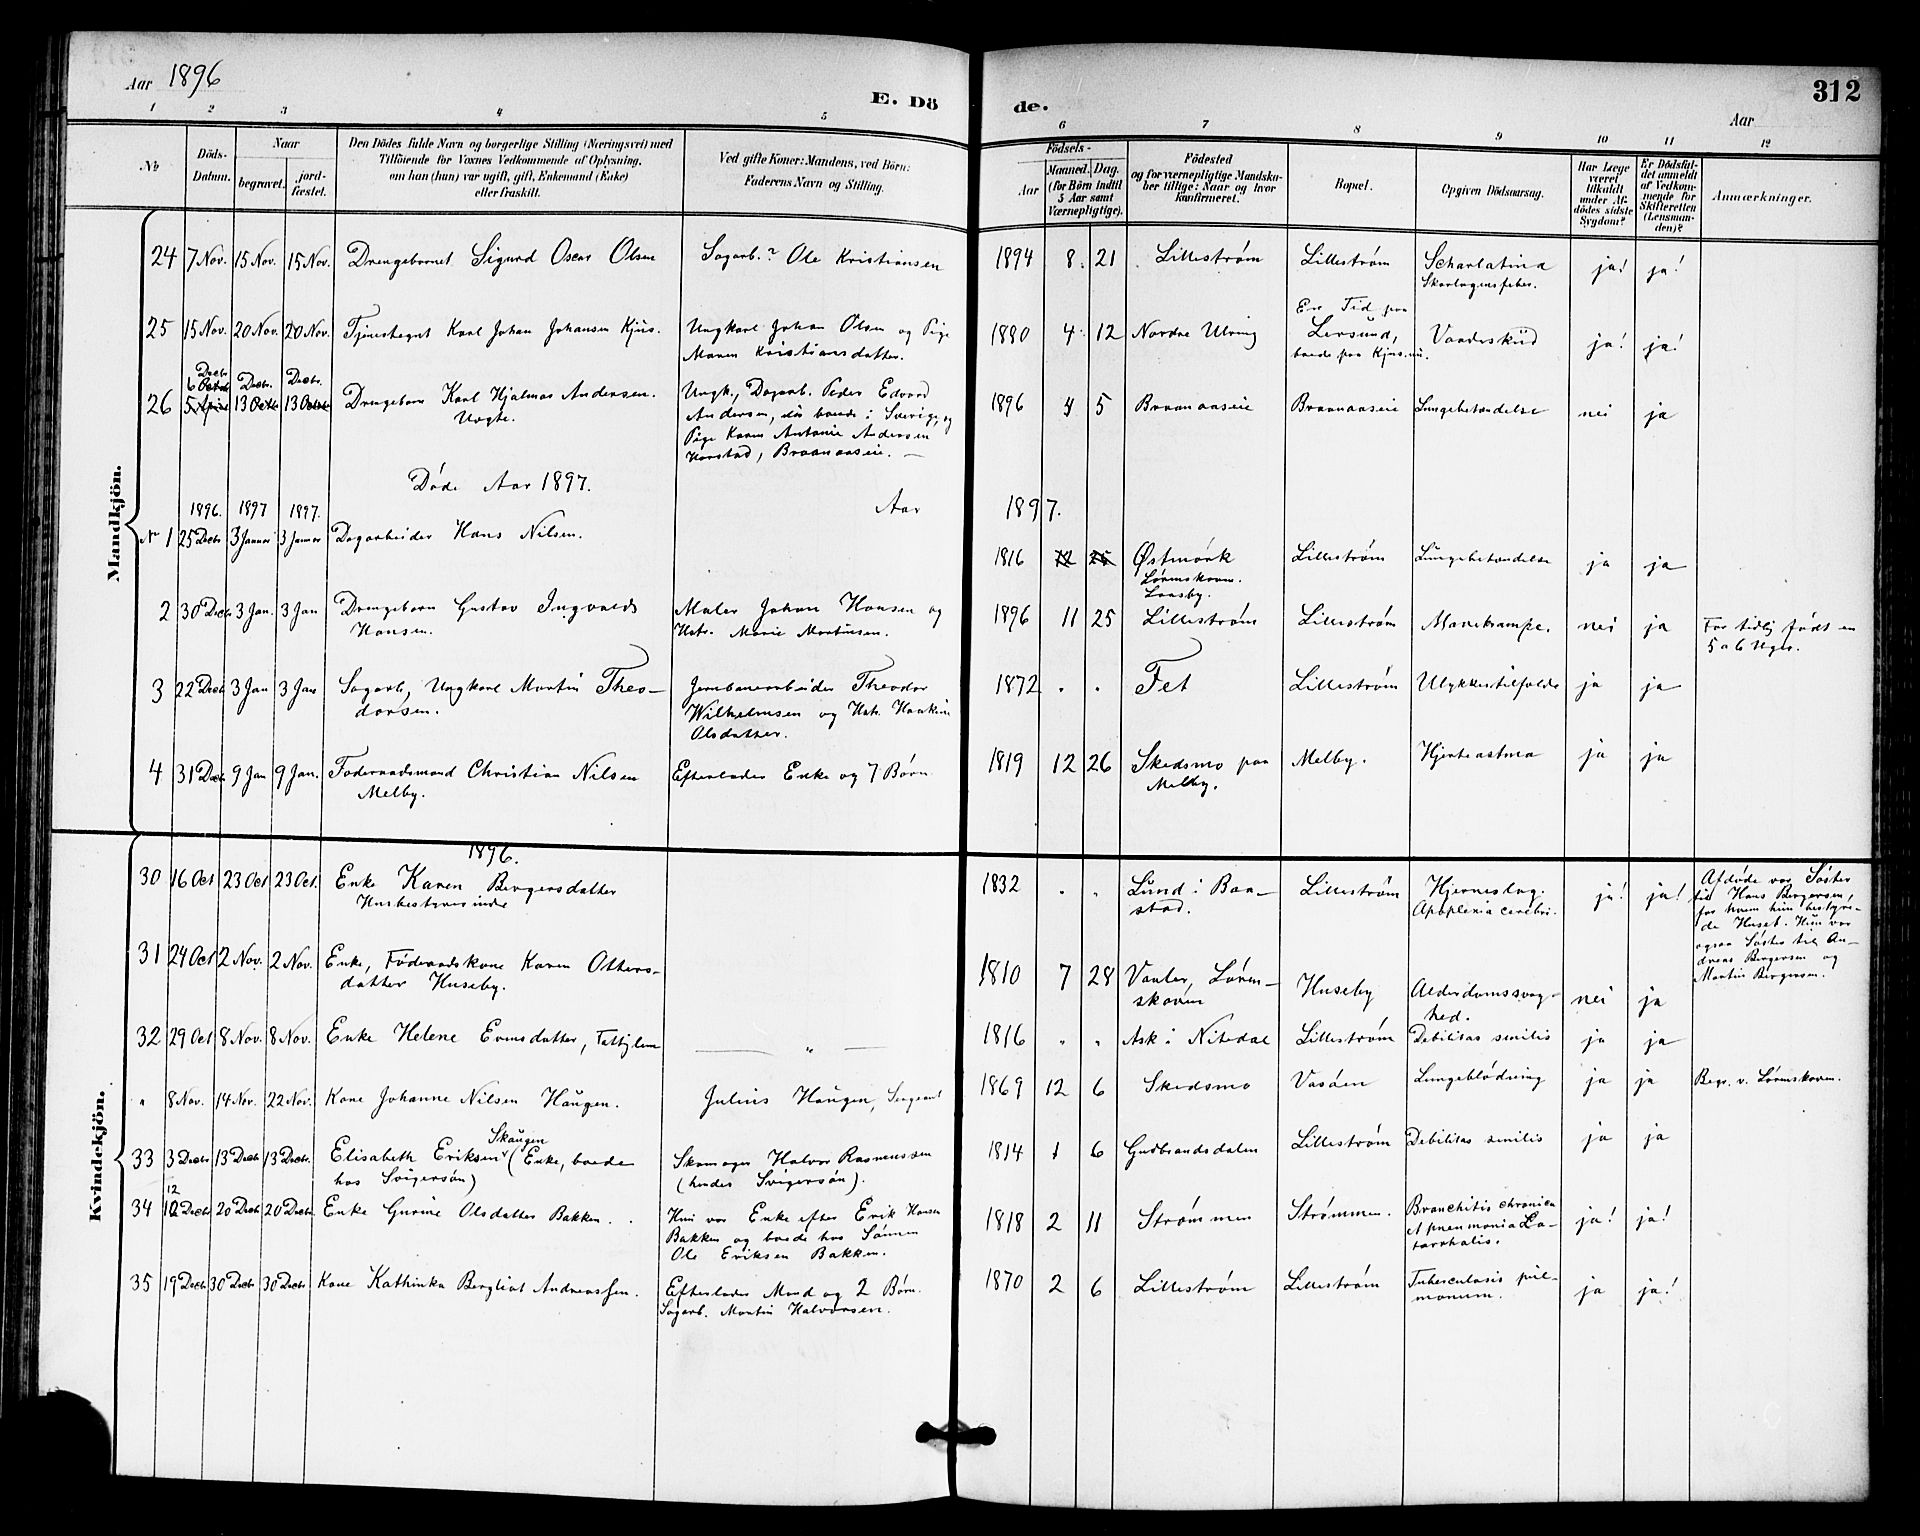 Aar 1896
E. Dö
de.
Aar
312
1 2 3 4 5 6 7 8 9 10 11 12
No
Döds-Datum.
Naar
begravet.
jord-fæstet.
Den Dödes fulde Navn og borgerlige Stilling (Næringsvei) med
Tilföiende for Voxnes Vedkommende af Oplysning,
om han (hun) var ugift, gift, Enkemand (Enke)
eller fraskilt.
Ved gifte Koner: Mandens, ved Börn:
Faderens Navn og Stilling.
Födsels-
Aar
Maaned. Dag.
(for Börn indtil
5 Aar samt
Værnepligtige).
Födested
og for værnepligtige Mandska-
ber tillige: Naar og hvor
konfirmeret.
Bopæl.
Opgiven Dödsaarsag.
Har Læge
været
tilkaldt
under Af-
dödes sidste
Sygdom?
Er Dödsfal-
det anmeldt
af Vedkom-
mende for
Skifteretten
(Lensman-
den)?
Anmærkninger.
Mandkjön.
24 7 Nov. 15 Nov. 15 Nov. Drengebarnet Sigurd Oscar Olsen Sagarb.? Ole Kristiansen 1894 8. 21 Lillestrøm Lillestrøm Scharlatina ja! ja!
Skarlagensfeber.
25 15 Nov. 20 Nov. 20 Nov. Tjenestegut Karl Johan Johansen Kjus. Ungkarl Johan Olsen og Pige 1880 4. 12 Nordre Ulving En Tid paa Vaadeskud ja! ja!
Maren Kristiansdatter. Lersund,
boede paa Kjus nu.
Decbr. Decbr. Decbr.
6 Octbr
26 5 April 13 Octbr 13 Octbr Drengebarn Karl Hjalmar Andersen. Ungk., Dagarb. Peder Edvard 1896 4 5 Braanaaseie Braanaaseie Lungebetændelse nei ja
Uægte. Andersen, der boede i Sverige, og
Pige Karen Antonie Andersen
Harstad, Braanaaseie.
Døde Aar 1897. Aar 1897.
1896. 1897 1897.
Nr 1 25 Decbr 3 Januar 3 Januar Dagarbeider Hans Nilsen. 1816 12 25 Østmørk Lillestrøm Lungebetændelse ja ja
Lørnskoven.
Laasby.
2 30 Decbr 3 Jan. 3 Jan Drengebarn Gustav Ingvalds Maler Johan Hansen og 1896 11 25 Lillestrøm Lillestrøm Mavekrampe. nei ja For tidlig født en
Hansen. Hstr. Marie Martinsen. 5 a 6 Uger.
3 22 Decb 3 Jan 3 Jan Sagarb, Ungkarl Martin Theo- Jernbanearbeider Theodor 1872 " " Fet Lillestrøm Ulykkestilfælde ja ja
dorsen. Wilhelmsen og Hstr. Haakine
Olsdatter.
4 31 Decb 9 Jan 9 Jan. Foderaadsmand Christian Nilsen Efterlader Enke og 7 Børn. 1819 12 26 Skedsmo paa Melby. Hjerteastma ja ja
Melby. Melby.
Kvindekjön.
1896.
30 16 Oct 23 Oct 23 Oct. Enke Karen Bergersdatter 1832 " " Lund i Baa- Lillestrøm Hjerneslag. ja! ja! Afdøde var Søster
Husbestyrerinde stad. Apoplexia cerebri. til Hans Bergersen,
for hvem hun bestyre-
de Huset. Hun var
ogsaa Søster til An-
dreas Bergersen og
Martin Bergersen.
31 24 Oct 2 Nov. 2 Nov. Enke, Føderaadskone Karen Otters- 1810 7 28 Vanler, Løren- Huseby Alderdomssvag- nei ja
datter Huseby. skoven hed.
32 29 Oct 8 Nov. 8 Nov. Enke Helene Evensdatter, Fattiglem — " — 1816 " " Ask i Nitedal Lillestrøm Debilitas senilis ja ja
" 8 Nov. 14 Nov. 22 Nov. Kone Johanne Nilsen Haugen. Julius Haugen, Sergeant 1869 12 6 Skedsmo Vasåen Lungeblødning ja ja Begr. v. Lørnskoven.
Skaugen
33 3 Decbr 13 Decbr 13 Decbr. Elisabeth Eriksen (Enke, boede Skomager Halvor Rasmussen 1814 1 6 Gudbrandsdalen Lillestrøm Debilitas senilis ja ja
hos Svigersøn) (hendes Svigersøn).
12
34 10 Decbr 20 Decbr 20 Decbr. Enke Gurine Olsdatter Bakken. Hun var Enke efter Erik Hansen 1818 2 11 Strømmen Strømmen. Bronchitis chronica ja! ja!
Bakken og boede hos Sønnen et pneumonia Ca-
Ole Eriksen Bakken. tarrhalis.
35 19 Decbr 30 Decbr 30 Decbr Kone Kathinka Bergliot Andreassen. Efterlader Mand og 2 Børn. 1870 2 6 Lillestrøm Lillestrøm Tuberculosis pul- ja ja!
Sagarb. Martin Halvorsen. monum.